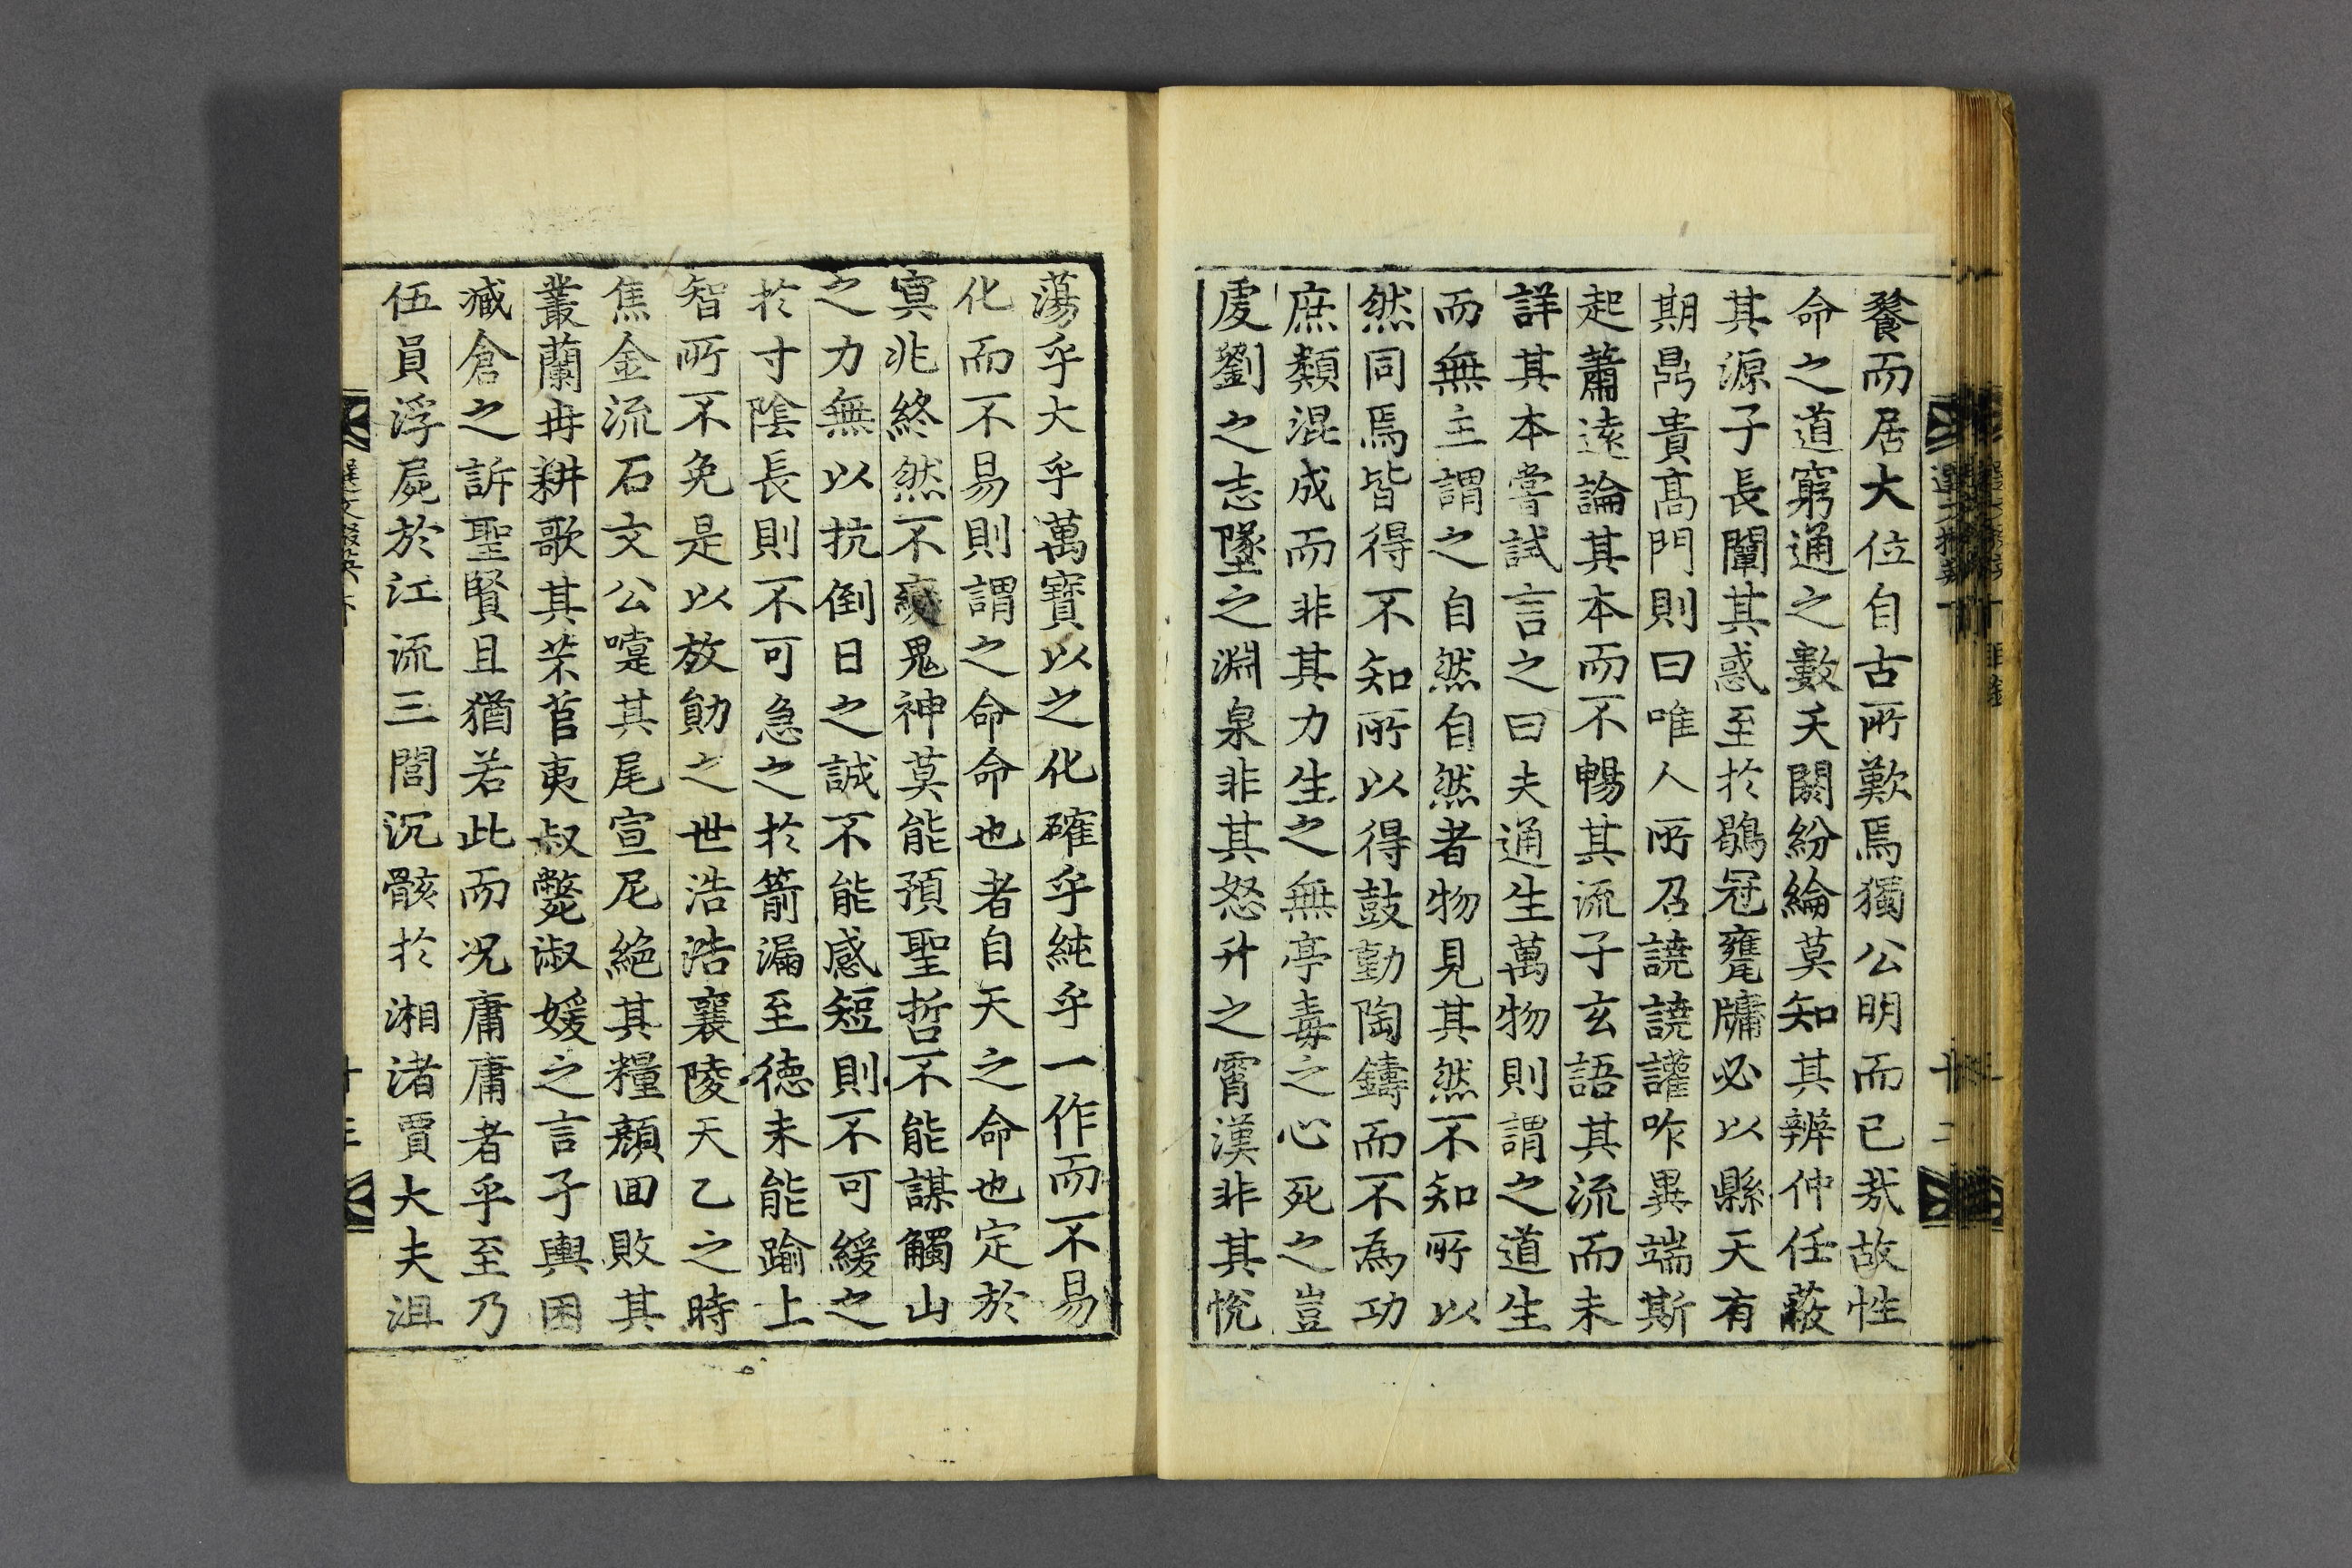 餮而居大位自古所歎焉獨公明而已㢤故性
命之道窮通之數夭閼紛綸莫知其辨仲任蔽
其源子長闡其惑至於鶡冠甕牖必以縣天有
期鼎貴髙門則曰唯人所召譊譊讙咋異端斯
起蕭逺論其本而不暢其流子玄語其流而未
詳其本嘗試言之曰夫通生萬物則謂之道生
而無主謂之自然自然者物見其然不知所以
然同焉皆得不知所以得鼓動陶鑄而不為功
庶類混成而非其力生之無亭毒之心死之豈
䖍劉之志墜之淵泉非其怒升之霄漢非其悅
蕩乎大乎萬寶以之化確乎純乎一作而不易
化而不易則謂之命命也者自天之命也定於
冥兆終然不變鬼神莫能預聖哲不能謀觸山
之力無以抗倒日之誠不能感短則不可緩之
於寸陰長則不可急之於箭漏至徳未能踰上
智所不免是以放勛之世浩浩襄陵天乙之時
焦金流石文公嚏其尾宣尼絶其糧顔回敗其
叢蘭冉耕歌其芣苢夷叔斃淑媛之言子輿困
臧倉之訴聖賢且猶若此而况庸庸者乎至乃
伍員浮屍於江流三閭沉骸於湘渚賈大夫沮